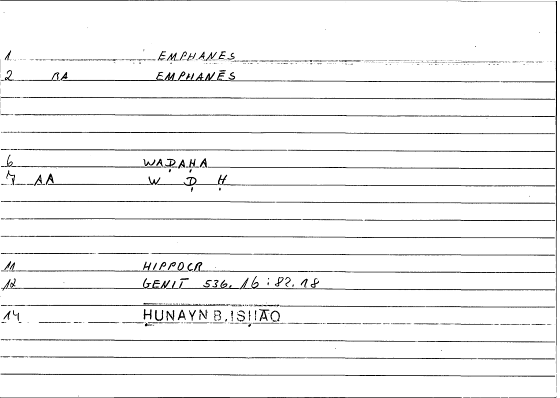 1 EMPHANES
2 BA EMPHANĒS
6 WAḌAḤA
7 AA W Ḍ Ḥ
11 HIPPOCR
12 GENIT 536, 16 : 82, 18
14 ḤUNAYN B. ISḤĀQ